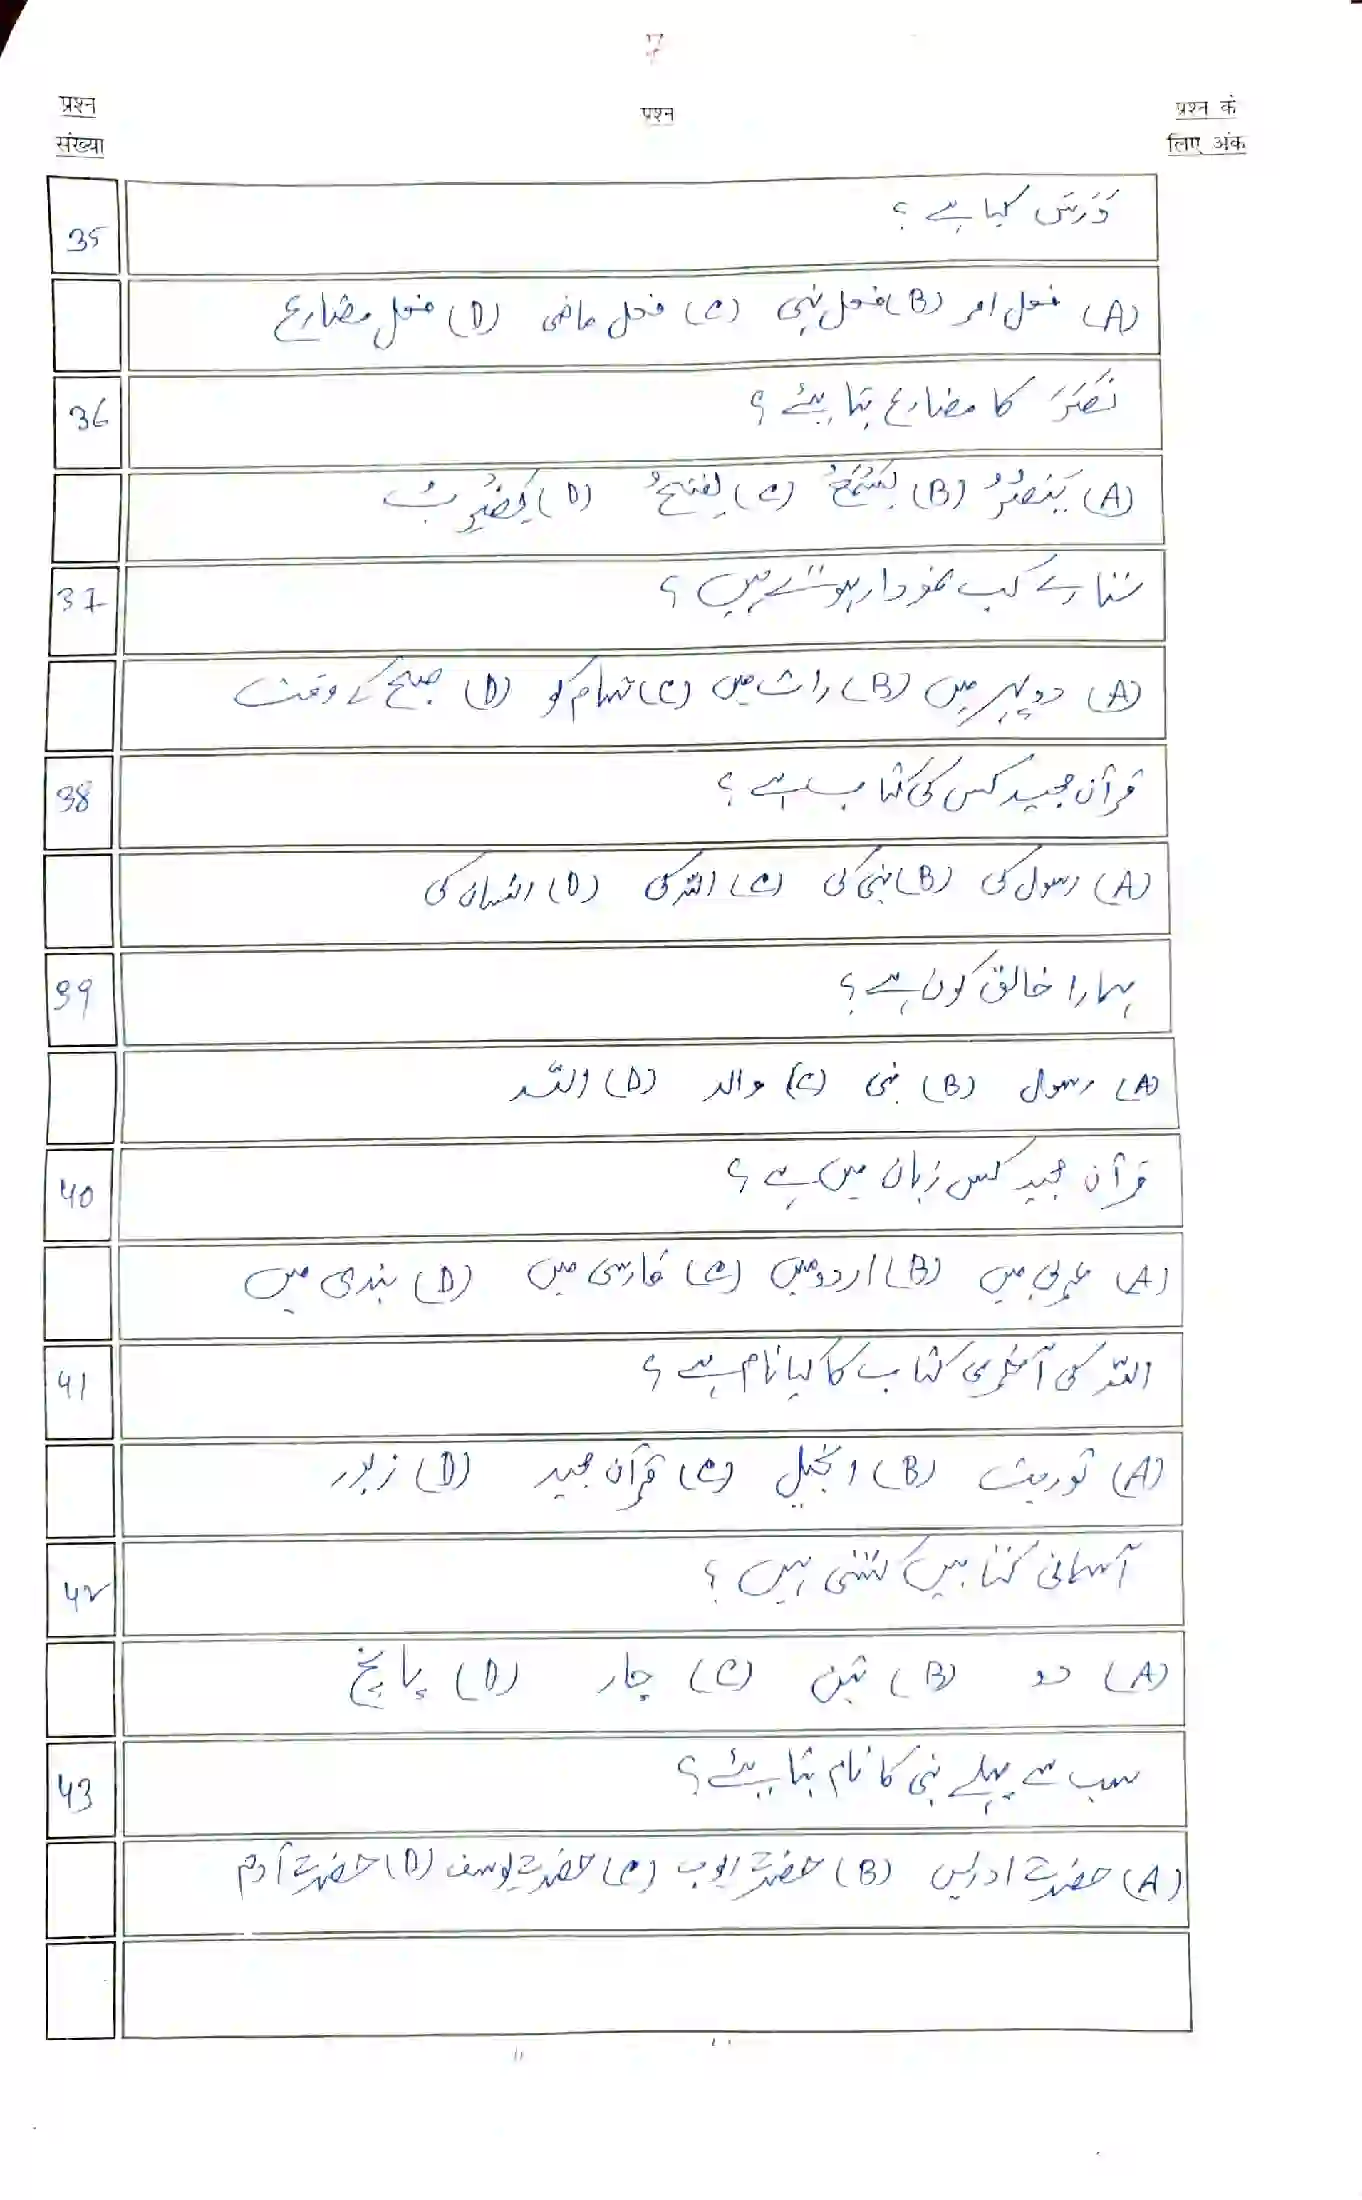 प्रश्न संख्या
प्रश्न
प्रश्न के लिए अंक
35 دَرَسَ کیا ہے ؟
(A) فعل امر (B) فعل نہی (C) فعل ماضی (D) فعل مضارع
36 نَصَرَ کا مضارع بتایئے ؟
(A) یَنصُرُ (B) (C) یفتحُ (D) یَضرِبُ
37 ستارے کب نمودار ہوتے ہیں ؟
(A) دوپہر میں (B) رات میں (C) شام کو (D) صبح کے وقت
38 قرآن مجید کس کی کتاب ہے ؟
(A) رسول کی (B) نبی کی (C) اللہ کی (D) انسان کی
39 ہمارا خالق کون ہے ؟
(A) رسول (B) نبی (C) والد (D) اللہ
40 قرآن مجید کس زبان میں ہے ؟
(A) عربی میں (B) اردو میں (C) فارسی میں (D) ہندی میں
41 اللہ کی آخری کتاب کا کیا نام ہے ؟
(A) توریت (B) انجیل (C) قرآن مجید (D) زبور
42 آسمانی کتابیں کتنی ہیں ؟
(A) دو (B) تین (C) چار (D) پانچ
43 سب سے پہلے نبی کا نام بتایئے ؟
(A) حضرت ادریس (B) حضرت ایوب (C) حضرت یوسف (D) حضرت آدم